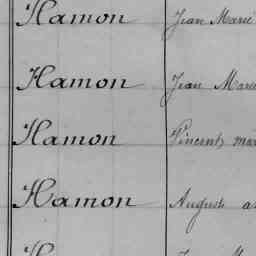 Hamon Jean Marie
Hamon Jean Marie
Hamon Vincent
Hamon Auguste